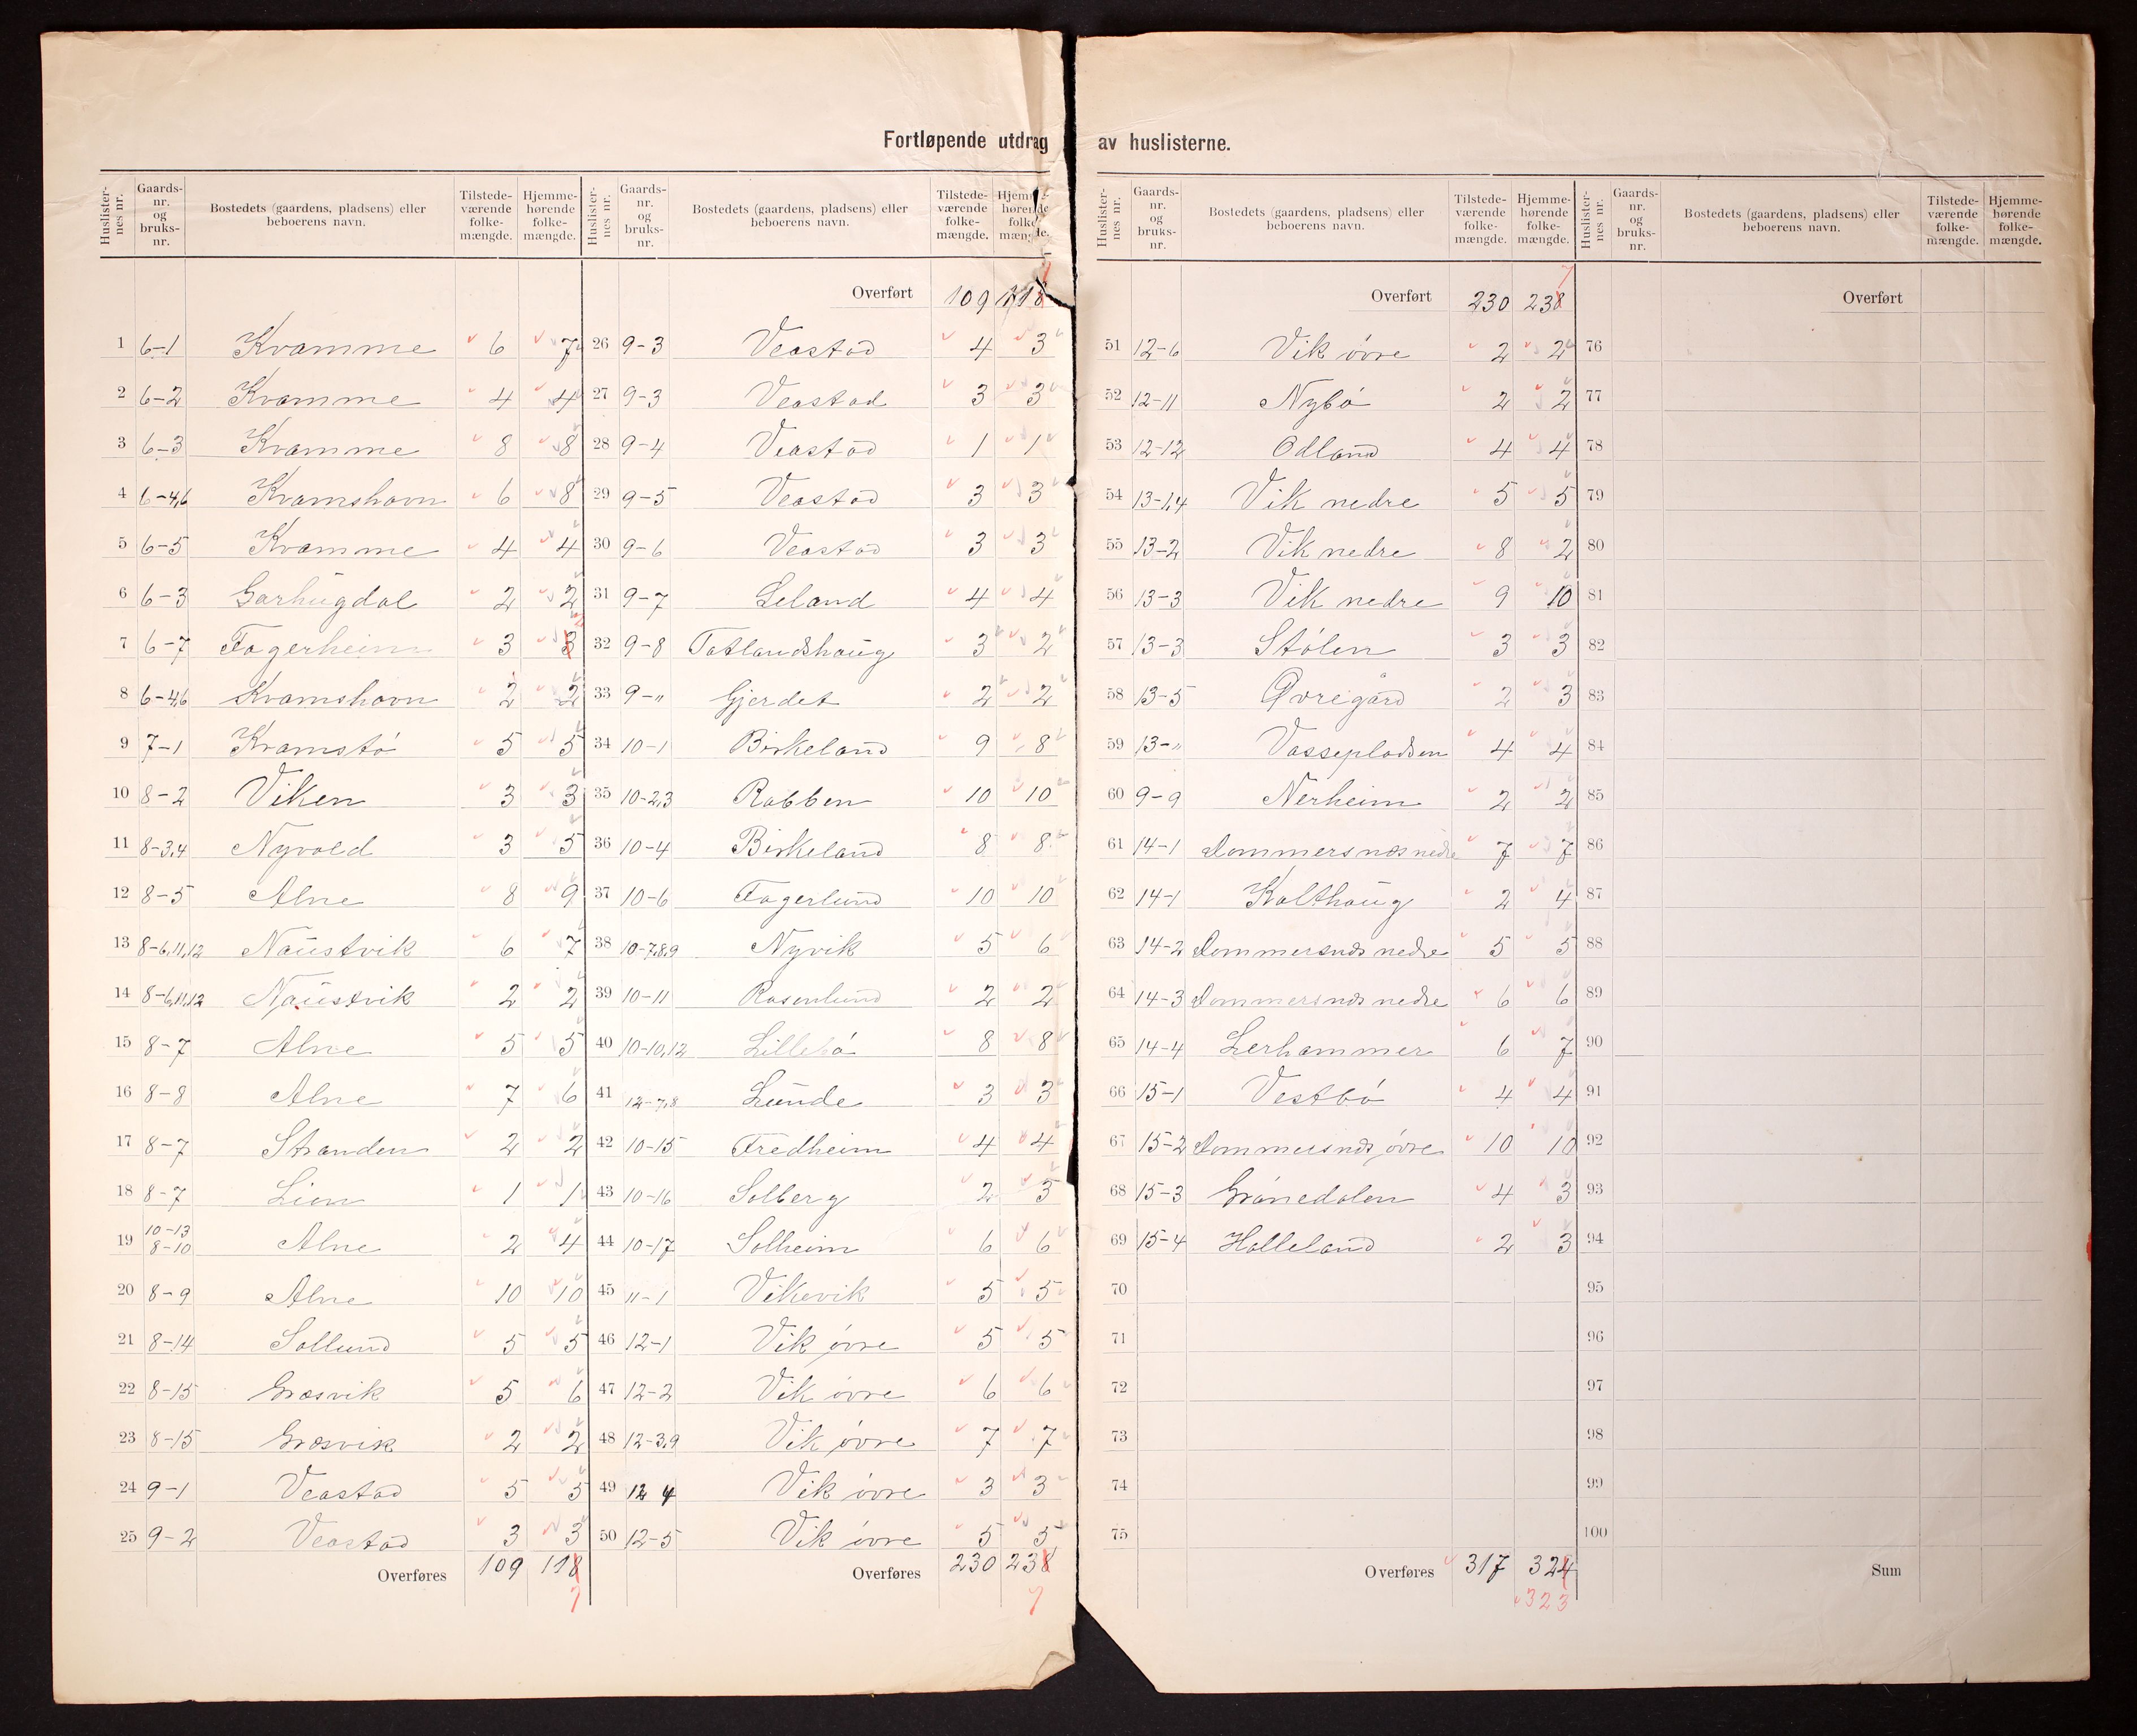 Fortløpende utdrag av huslisterne.
Huslisternes nr. Gaards-nr. og bruks-nr. Bostedets (gaardens, pladsens) eller beboerens navn. Tilstede-værende folke-mængde. Hjemme-hørende folke-mængde.
1 6-1 Kvamme 6 7
2 6-2 Kvamme 4 4
3 6-3 Kvamme 8 8
4 6-4,6 Kvamshavn 6 8
5 6-5 Kvamme 4 4
6 6-3 Garhugdal 2 2
7 6-7 Fagerheim 3 3
8 6-4,6 Kvamshavn 2 2
9 7-1 Kvamstö 5 5
10 8-2 Viken 3 3
11 8-3,4 Nyvold 3 5
12 8-5 Alne 8 9
13 8-6,11,12 Naustvik 6 7
14 8-6,11,12 Naustvik 2 2
15 8-7 Alne 5 5
16 8-8 Alne 7 6
17 8-7 Stranden 2 2
18 8-7 Lien 1 1
19 10-13 8-10 Alne 2 4
20 8-9 Alne 10 10
21 8-14 Sollund 5 5
22 8-15 Græsvik 5 6
23 8-15 Græsvik 2 2
24 9-1 Veastad 5 5
25 9-2 Veastad 3 3
Overføres 109 118
7
Huslisternes nr. Gaards-nr. og bruks-nr. Bostedets (gaardens, pladsens) eller beboerens navn. Tilstede-værende folke-mængde. Hjemme-hørende folke-mængde.
Overført 109 118
26 9-3 Veastad 4 3
27 9-3 Veastad 3 3
28 9-4 Veastad 1 1
29 9-5 Veastad 3 3
30 9-6 Veastad 3 3
31 9-7 Leland 4 4
32 9-8 Tatlandshaug 3 2
33 9-" Gjerdet 2 2
34 10-1 Birkeland 9 8
35 10-2,3 Rabben 10 10
36 10-4 Birkeland 8 8
37 10-6 Fagerlund 10 10
38 10-7,8,9 Nyvik 5 6
39 10-11 Rosenlund 2 2
40 10-10,12 Lillebö 8 8
41 12-7,8 Lunde 3 3
42 10-15 Fredheim 4 4
43 10-16 Solberg 2 5
44 10-17 Solheim 6 6
45 11-1 Vikevik 5 5
46 12-1 Vik övre 5 5
47 12-2 Vik övre 6 6
48 12-3,9 Vik övre 7 7
49 12 4 Vik övre 3 3
50 12-5 Vik övre 5 5
Overføres 230 238
7
Huslisternes nr. Gaards-nr. og bruks-nr. Bostedets (gaardens, pladsens) eller beboerens navn. Tilstede-værende folke-mængde. Hjemme-hørende folke-mængde.
7
Overført 230 238
51 12-6 Vik övre 2 2
52 12-11 Nybö 2 2
53 12-12 Odland 4 4
54 13-1,4 Vik nedre 5 5
55 13-2 Vik nedre 8 2
56 13-3 Vik nedre 9 10
57 13-3 Stölen 3 3
58 13-5 Øvregård 2 3
59 13-" Vassepladsen 4 4
60 9-9 Nerheim 2 2
61 14-1 Dommersnæs nedre 7 7
62 14-1 Kalthaug 2 4
63 14-2 Dommersnæs nedre 5 5
64 14-3 Dommersnæs nedre 6 6
65 14-4 Lerhammer 6 7
66 15-1 Vestbö 4 4
67 15-2 Dommersnæs övre 10 10
68 15-3 Grönedalen 4 3
69 15-4 Halleland 2 3
70
71
72
73
74
75
Overføres 317 324
323
Huslisternes nr. Gaards-nr. og bruks-nr. Bostedets (gaardens, pladsens) eller beboerens navn. Tilstede-værende folke-mængde. Hjemme-hørende folke-mængde.
Overført
76
77
78
79
80
81
82
83
84
85
86
87
88
89
90
91
92
93
94
95
96
97
98
99
100
Sum